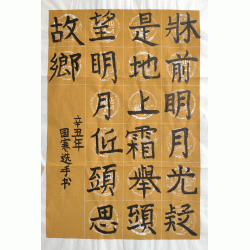 牀前明月光疑
是地上霜舉頭
望明月低頭思
故鄉
辛丑年
书